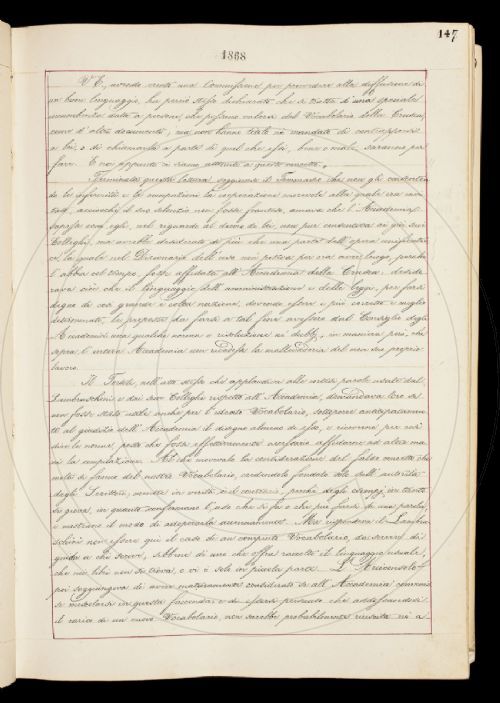 147
1868
V. E., avendo creato una Commissione per provvedere alla diffusione di
un buon linguaggio, ha perciò stesso dichiarato che si tratta di una speciale
incombenza data a persone, che possano valersi del Vocabolario della Crusca,
come d'altri documenti, ma non hanno certo il mandato di contrapporsi
a lei, o di chiamarla a parte di quel che esse, bene o male, saranno per
fare. E noi appunto ci siamo attenuti a questo concetto.
Terminata questa lettera soggiunse il Tommaseo che non gli
di lei e la cooperazione onorevole alla quale era
, acciocchè il suo silenzio non fosse franteso, amava che l'Accademia
sapesse com'egli, nel riguardo al decoro di lei, non pur consentiva coi suoi
Colleghi, ma avrebbe desiderato di più che una parte dell'opera
, la quale nel Dizionario dell'uso non poteva per ora aver luogo, perchè
l'abbia col tempo, fosse affidata all'Accademia della Crusca: deside-
rava cioè che il linguaggio dell'amministrazione e delle leggi, per farsi
degno di così grande e colta nazione, dovendo essere e più corretto e meglio
determinato, le proposte da farsi a tal fine avessero dal Consiglio degli
Accademici una qualche norma o risoluzione ai dubbj, in maniera però, che
sopra l'intera Accademia non ricadesse la malleveria del non suo proprio
lavoro.
Il Tortoli, nell'atto stesso che applaudiva alle cortesi parole usate dal
Lambruschini e dai suoi Colleghi rispetto all'Accademia, domandava loro se
non fosse stato utile anche per l'ideato Vocabolario, sottoporre anticipatamen-
te al giudizio dell'Accademia il disegno almeno di esso, e riceverne per così
dire le norme, posto che fosse effettivamente necessario affidarne ad altre ma-
ni la compilazione. Al che moveva la considerazione del falso concetto che
molti si fanno del nostro Vocabolario, credendolo fondato solo sull'autorità
degli Scrittori, mentre in verità è il contrario, perchè degli esempj in tanto
si giova, in quanto confermano l'uso che si fa o che può farsi di una parola,
e mostrano il modo di adoperarla acconciamente. Ma rispondeva il Lambru-
schini non essere qui il caso di un compiuto Vocabolario, da servir di
guida a chi scrive, sibbene di uno che offra raccolto il linguaggio usuale,
che nei libri non si trova, o vi è solo in piccola parte. L'Arciconsolo
poi soggiungeva di avere maturamente considerato se all'Accademia convenis-
se mescolarsi in questa faccenda, e di essersi persuaso che addossandosi
il carico di un nuovo Vocabolario, non sarebbe probabilmente riuscita nè a